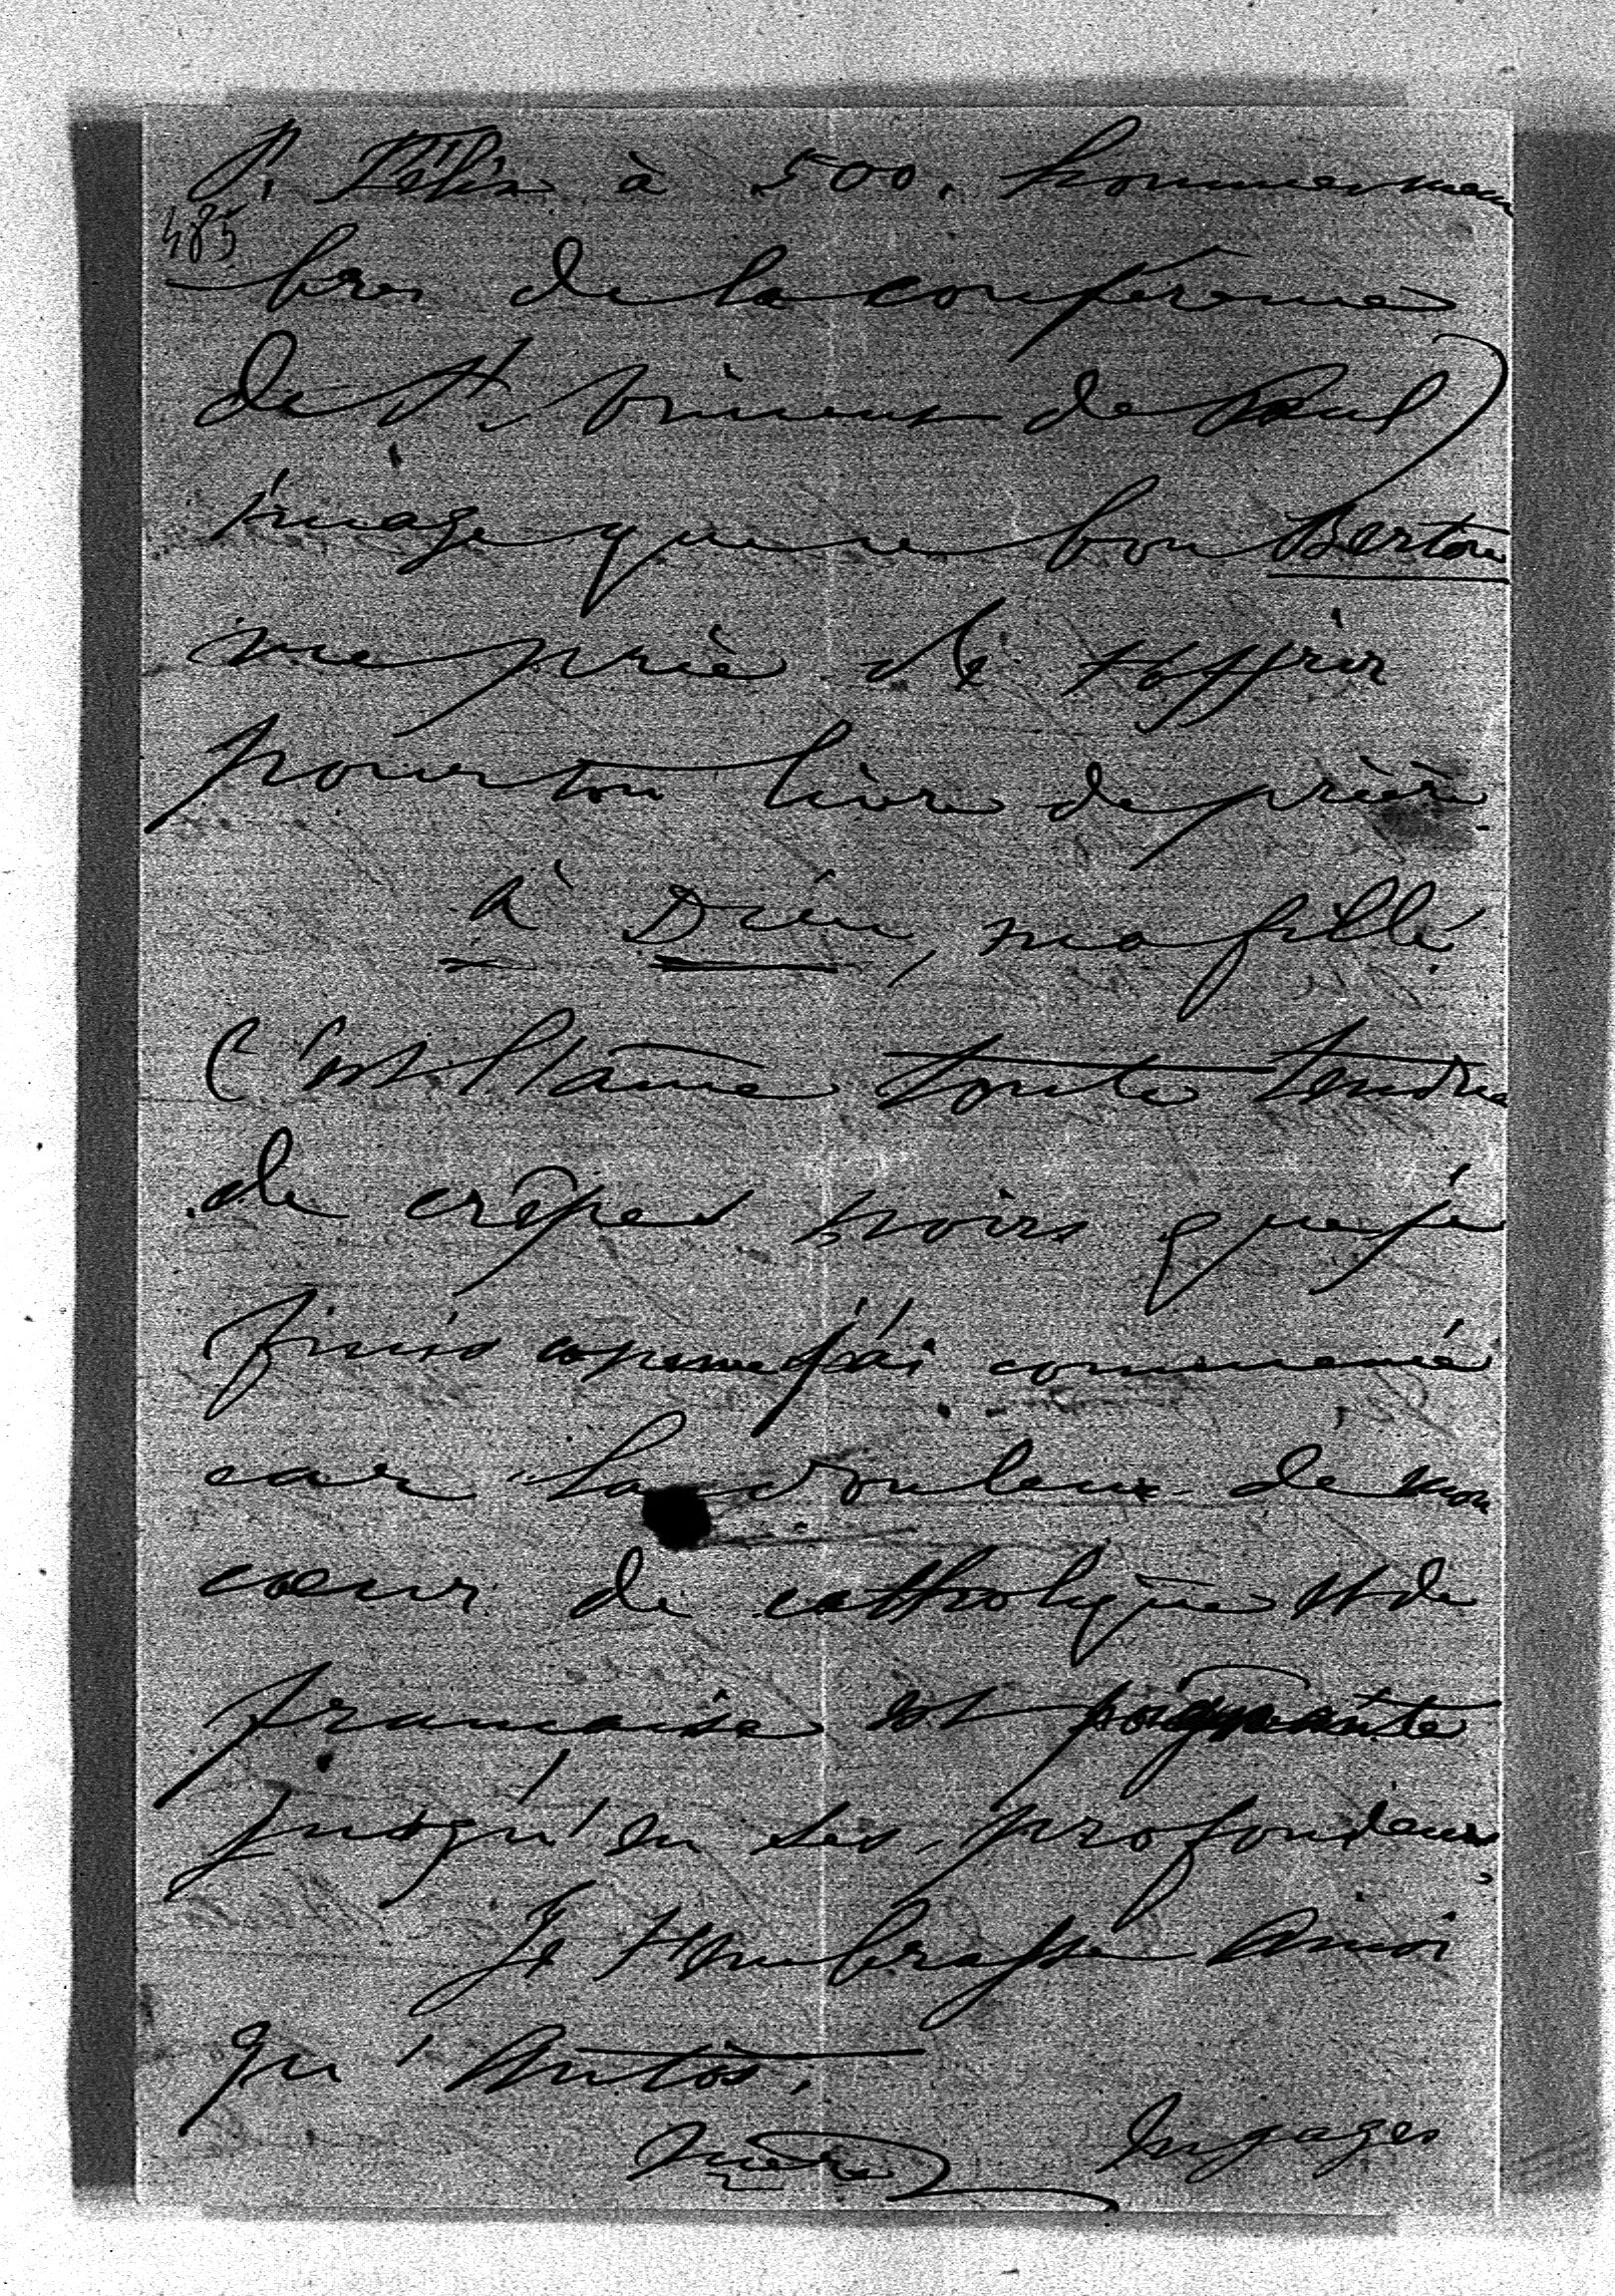 P. Félix à 500. hommes mem
485
bres de la conférence
de St. Vincent de Paul)
image que ce bon Berton
me prie de t'offrir
pour ton livre de prière.
à Dieu, ma fille.
C'est l'âme toute tendue
de crêpes noirs que je
finis comme j'ai commencé
car la douleur de mon
cœur de catholique et de
française est poignante
jusqu'en ses profondeurs,
Je t'embrasse ainsi
qu'Antos.
Mère